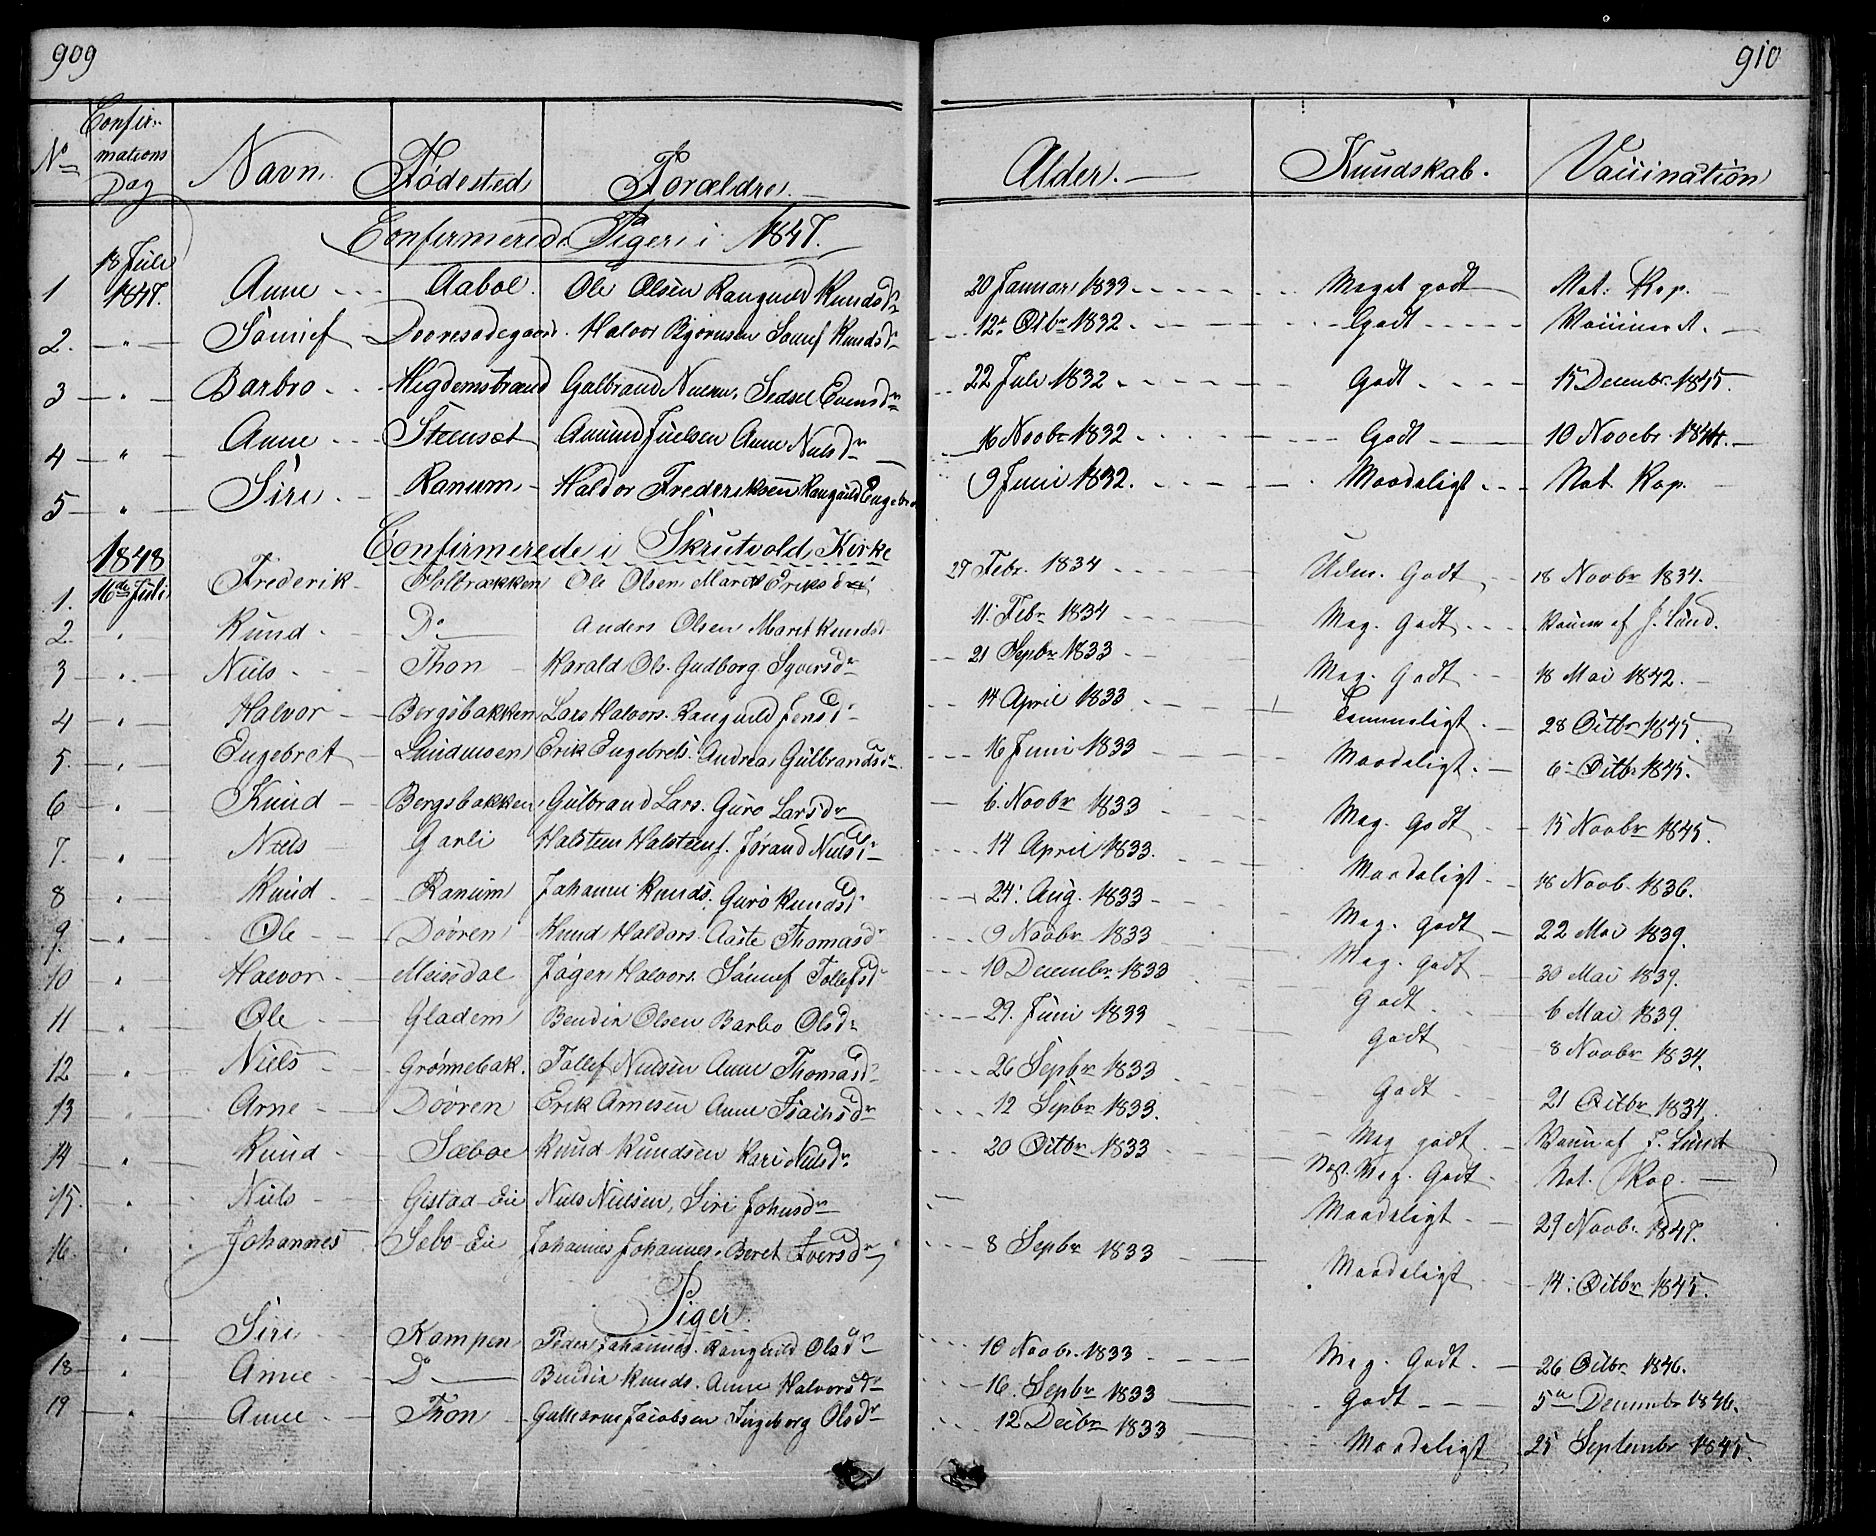 909
910
No Confirmations Dag Navn Fødested Forældre Alder. Kundskab. Vaccination
Confirmerede Piger i 1847.
1 18 Juli 1847. Anne Aabøl. Ole Olsen Rangnild Knudsdr 20 Januar 1833 Meget godt Nat: Kop.
2. " Sønnef Dooresødegaard. Halvor Bjørnsen Sønnef Knudsdr 12te Octbr 1832 Godt Vaccineret.
3 " Barbro Hegdemstrand Gulbrand Sidsel Evensdr 22 Juli 1832 Godt 15 Decembr 1845.
4 " Anne Steenset Amund Juelsen Anne Nielsdr 16 Novbr 1832 Godt 10 Novebr 1844.
5 " Siri Ranum Haldor Frederiksen Rangnild Engebr 9 Juni 1832. Maadeligt Nat Kop.
Confirmerede i Skrutvold Kirke
1. 1848 16de Juli Frederik Holbrækken Ole Olsen Marit Eriksdr 27 Febr. 1834 Udm. Godt 18 Novbr 1834.
2. " Knud Do Anders Olsen Marit Knudsd 11. Febr 1834 Meg. Godt Vaccin af J. Lund.
3 " Niels Thon Harald Ols. Gudborg Syversdr 21 Sepbr 1833 Meg. Godt 18 Mai 1842.
4 " Halvor Bergsbakken Lars Halvors. Rangnild Jensdr 14 April 1833 Temmeligt 28 Octbr 1845.
5. " Engebret Erik Engebrets. Andrea Gulbrandsdr 16 Juni 1833 Maadeligt. 6 Octbr 1845.
6 " Knud Bergsbakken Gulbrand Lars. Guro Larsdr 6. Novbr 1833 Meg. Godt 15 Novbr 1845.
7. " Niels Garli Halsteen Halsteens. Jørand Nielsdr 14 April 1833. Maadeligt 18 Novb. 1836.
8 " Knud Ranum Johanne Knuds. Guro Knudsdr 24. Aug. 1833 Meg. Godt 22 Mai 1839.
9. " Ole Døvren Knud Haldors. Aaste Thomasdr 9 Novbr 1833 Meg. Godt 30 Mai 1839.
10 " Halvor Meisdal Jøger Halvors. Sønnef Tollefsdr 10 Decembr 1833 Godt 6 Mai 1839.
11 " Ole Gladem Bendix Olsen Barbo Olsdr 29. Juni 1833 Godt 8 Novbr 1834.
12 " Niels Grønnebak. Tollef Nielsen Anne Thomasdr 26 Sepbr 1833 Godt 21 Octbr 1834.
13 " Arne Døvren Erik Arnesen Anne Isachsdr 12 Sepbr 1833. Meg godt Vaccin af J. Lund
14 " Knud Sæboe Knud Knudsen Kari Nielsdr. 20 Octbr 1833 Næst. Meg. Godt. Nat. Kop.
15. " Niels Gistad-Eie Niels Nielsen, Siri Johnsdr Maadeligt 29 Novbr 1847.
16. " Johannes Sebo-Eie Johannes Johannes. Beret Iversdr 8 Sepbr 1833 Maadeligt 14. Octbr 1845.
Piger.
" Siri Kampen Peder Johannes. Rangnild Olsdr 10 Novbr. 1833 Meg. Godt. 26 Octbr 1846.
18 " Anne Do Bendix Knuds. Anne Halvorsdr 16. Sepbr 1833 Godt 5te Decembr 1846.
19 " Anne Thon Guttorm Jacobsen Ingeborg Olsdr 12 Decbr 1833 Maadeligt 25 Septembr 1845